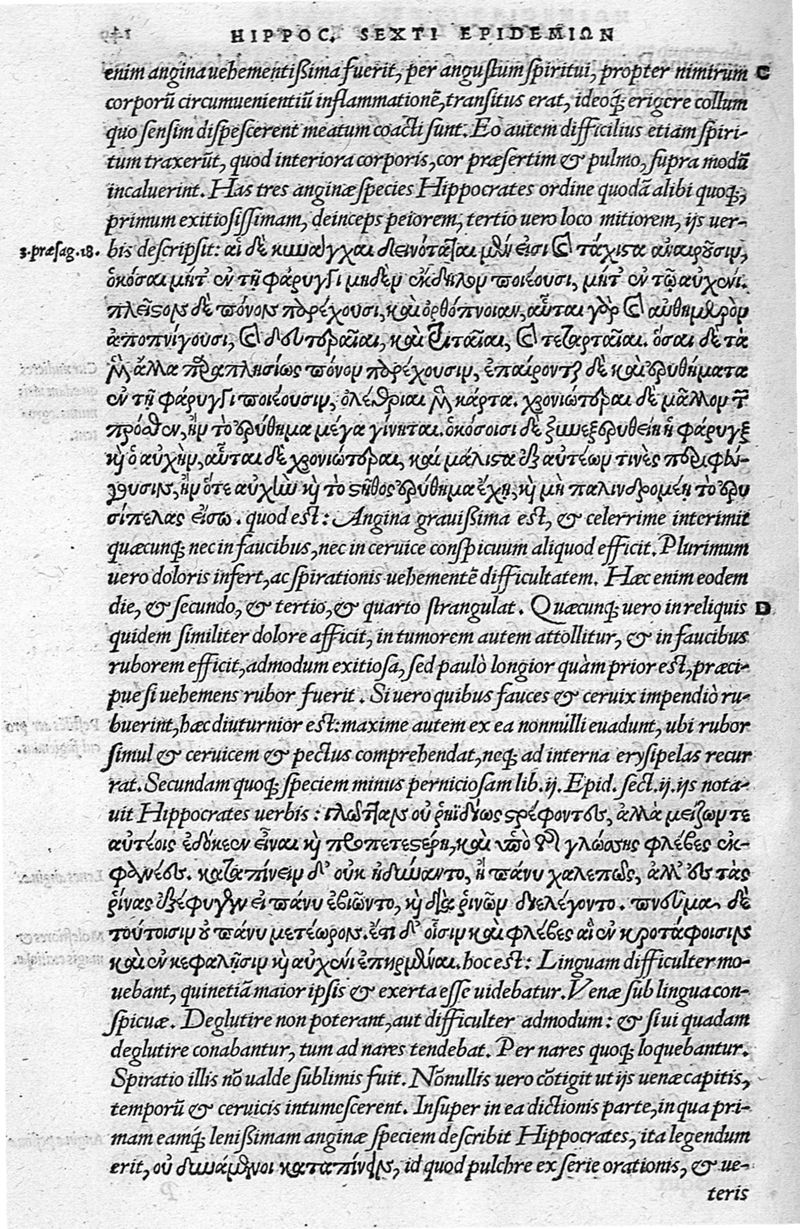 HIPPOC. SEXTI EPIDEMIΩN
enim angina uehementißima fuerit, per angustum spiritui, propter nimirum C
corporũ circumuenientiũ inflammationẽ, transitus erat, ideoq; erigere collum
quo sensim dispescerent meatum coacti sunt. Eo autem difficilius etiam spiri-
tum traxerũt, quod interiora corporis, cor præsertim & pulmo, supra modũ
incaluerint. Has tres anginæ species Hippocrates ordine quodã alibi quoq;,
primum exitiosissimam, deinceps peiorem, tertio uero loco mitiorem, ijs uer-
3. præsag. 18. bis descripsit: αἱ δὲ κυνάγχαι δεινόταται μέν εἰσι καὶ τάχιστα ἀναιροῦσιν,
ὁκόσαι μήτ' ἐν τῇ φάρυγγι μηδὲν ἔκδηλον ποιέουσι, μήτ' ἐν τῷ αὐχένι.
πλεῖστον δὲ πόνον παρέχουσι, καὶ ὀρθόπνοιαν, αὗται γὰρ καὶ αὐθημερὸν
ἀποπνίγουσι, καὶ δευτεραῖαι, καὶ τριταῖαι, καὶ τεταρταῖαι. ὅσαι δὲ τὰ
μὲν ἄλλα παραπλησίως πόνον παρέχουσιν, ἐπαίρονται δὲ καὶ ἐρυθήματα
ἐν τῇ φάρυγγι ποιέουσιν, ὀλέθριαι μὲν κάρτα. χρονιώτεραι δὲ μᾶλλον τῶν
πρόσθεν, ἢν τὸ ἐρύθημα μέγα γίνηται. ὁκόσοισι δὲ ξυνεξερυθείη ἡ φάρυγξ
καὶ ὁ αὐχὴν, αὗται δὲ χρονιώτεραι, καὶ μάλιστα ἐξ αὐτέων τινὲς περιφεύ-
γουσιν, ἢν ὅτε αὐχὴν καὶ τὸ στῆθος ἐρύθημα ἔχῃ, καὶ μὴ παλινδρομέῃ τὸ ἐρυ
σίπελας εἴσω. quod est: Angina grauißima est, & celerrime interimit
quæcunq; nec in faucibus, nec in ceruice conspicuum aliquod efficit. Plurimum
uero doloris infert, ac spirationis uehementẽ difficultatem. Hæc enim eodem
die, & secundo, & tertio, & quarto strangulat. Quæcunq; uero in reliquis D
quidem similiter dolore afficit, in tumorem autem attollitur, & in faucibus
ruborem efficit, admodum exitiosa, sed paulò longior quàm prior est, præci-
pue si uehemens rubor fuerit. Si uero quibus fauces & ceruix impendiò ru-
buerint, hæc diuturnior est: maxime autem ex ea nonnulli euadunt, ubi rubor
simul & ceruicem & pectus comprehendat, neq; ad interna erysipelas recur
rat. Secundam quoq; speciem minus perniciosam lib. ij. Epid. sect. ij. ijs nota-
uit Hippocrates uerbis: γλῶτταν οὐ ῥηϊδίως στρέφοντες, ἀλλὰ μείζων τε
αὐτέοις ἐδόκεεν εἶναι καὶ προπετεστέρη, καὶ ὑπὸ τῆς γλώσσης φλέβες ἐκ-
φανέες. καταπίνειν δ' οὐκ ἠδύναντο, ἢ πάνυ χαλεπῶς, ἀλλ' ἐς τὰς
ῥῖνας ἐξέφυγεν εἰ πάνυ ἐβιῶντο, καὶ διὰ ῥινῶν διελέγοντο. πνεῦμα δὲ
τούτοισιν οὐ πάνυ μετέωρον. ἔτι δ' οἷσιν καὶ φλέβες αἱ ἐν κροτάφοισιν
καὶ ἐν κεφαλῇσιν καὶ αὐχένι ἐπηρμέναι. hoc est: Linguam difficulter mo-
uebant, quinetiam maior ipsis & exerta esse uidebatur. Venæ sub lingua con-
spicuæ. Deglutire non poterant, aut difficulter admodum: & si ui quadam
deglutire conabantur, tum ad nares tendebat. Per nares quoq; loquebantur.
Spiratio illis nõ ualde sublimis fuit. Nõnullis uero cõtigit ut ijs uenæ capitis,
temporũ & ceruicis intumescerent. Insuper in ea dictionis parte, in qua pri-
mam eamq; lenißimam anginæ speciem describit Hippocrates, ita legendum
erit, οὐ δυνάμενοι καταπίνειν, id quod pulchre ex serie orationis, & ue-
teris